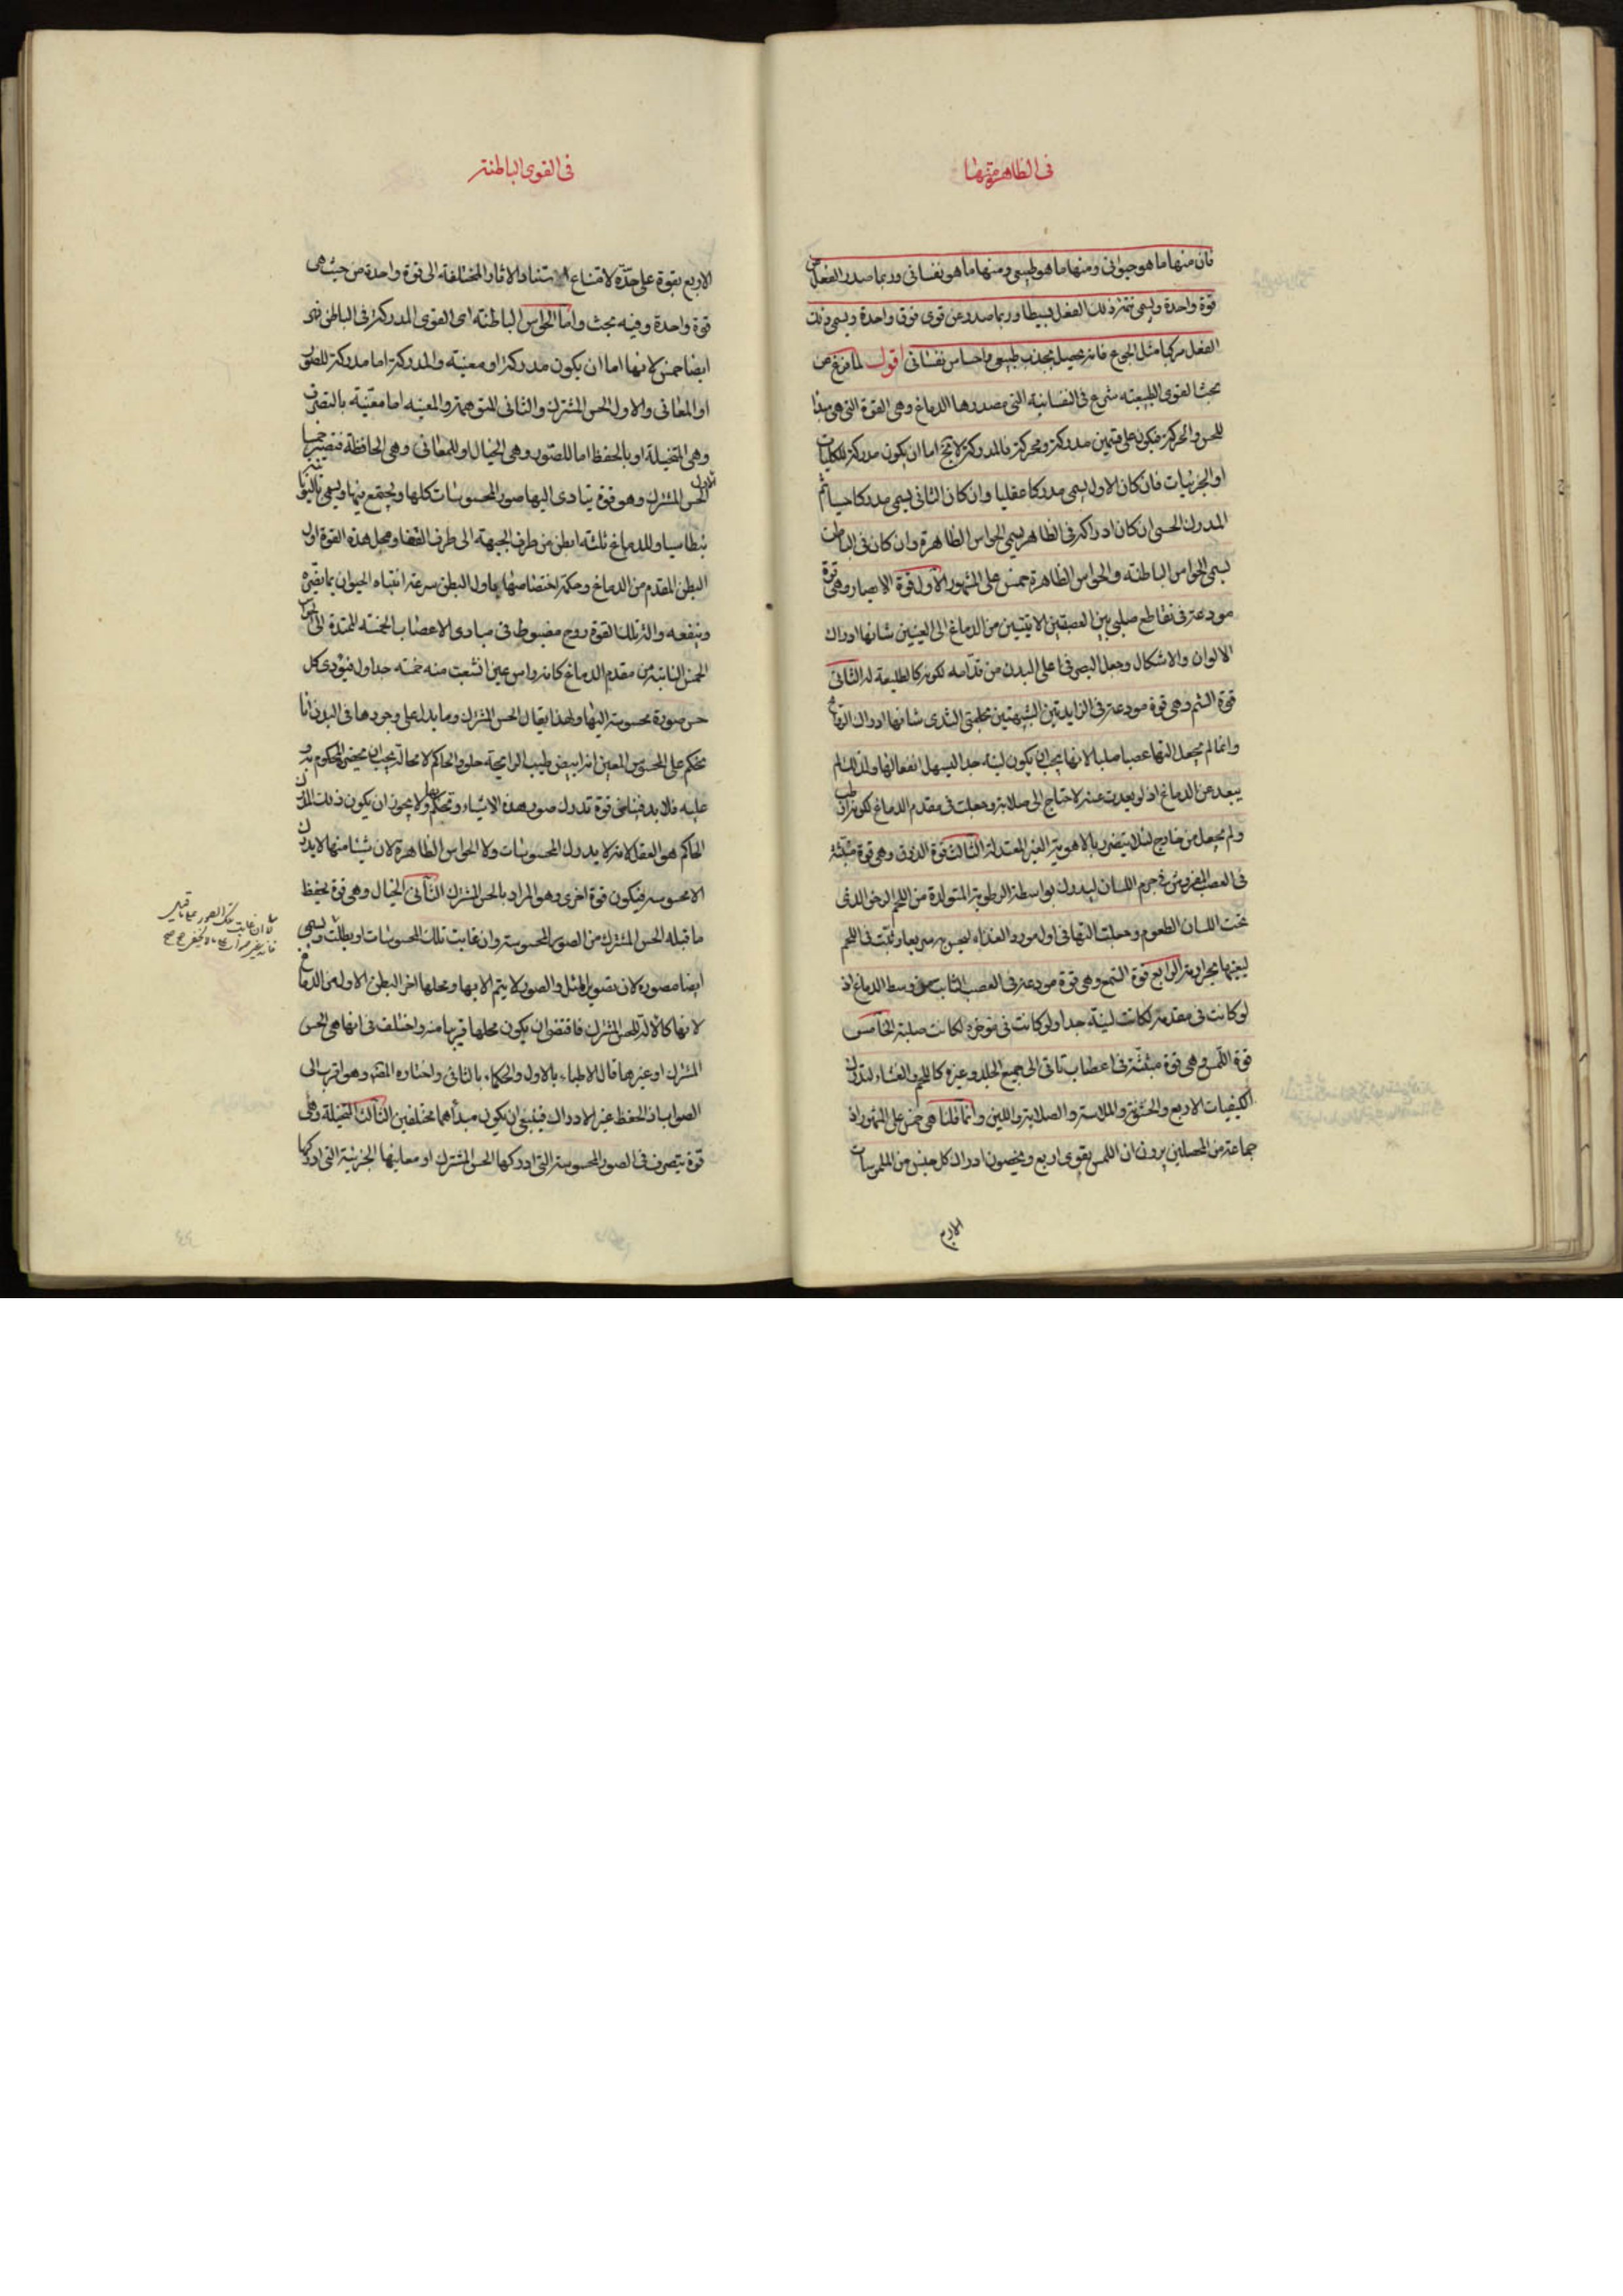 فى الظاهرة منها
فان منها ما هو حيوانى ومنها ما هو طبيعى ومنها ما هو نفسانى وربما صدر الفعل من
قوة واحدة ويسمى ذلك الفعل بسيطا وربما صدر عن قوى فوق واحدة ويسمى ذلك
الفعل مركبا مثل الجوع فانه يحصل بجذب طبيعى واحساس نفسانى اقول لما فرغ من
بحث القوى الطبيعية شرع فى النفسانية التى مصدرها الدماغ وهى القوة التى هى مبدأ
للحس والحركة فيكون على قسمين مدركة ومحركة فالمدركة لا يخ اما ان يكون مدركة للكليات
او الجزئيات فان كان الاول يسمى مدركا عقليا وان كان الثانى يسمى مدركا حسيا ثم
المدرك الحسى ان كان ادراكه فى الظاهر يسمى الحواس الظاهرة وان كان فى الباطن
يسمى الحواس الباطنة والحواس الظاهرة خمس على المشهور الاول قوة الابصار وهى قوة
مودعة فى تقاطع صليبى بين العصبتين الاتيتين من الدماغ الى العينين شانها ادراك
الالوان والاشكال وجعل البصر فى اعلى البدن من قدامه لكونه كالطليعة له الثانى
قوة الشم وهى قوة مودعة فى الزايدتين الشبيهتين بحلمتى الثدى شانها ادراك الروايح
وانما لم يجعل التها عصبا صلبا لانها يجب ان يكون لينة جدا ليسهل انفعالها ولذلك لم
يبعد عن الدماغ اذ لو بعدت عنه لاحتاج الى صلابة وجعلت فى مقدم الدماغ لكونه ارطب
ولم يجعل من خارج لئلا يتضرر بالاهوية الغير المعتدلة الثالث قوة الذوق وهى قوة منبثة
فى العصب المفروش فى جرم اللسان ليدرك بواسطة الرطوبة المتولدة من اللحم الرخو الذى
تحت اللسان الطعوم وجعلت التها فى اول مورد الغذاء
الرابع قوة السمع وهى قوة مودعة فى العصب الثابت من وسط الدماغ اذ
لو كانت فى مقدمه لكانت لينة جدا ولو كانت فى موخره لكانت صلبة الخامس
قوة اللمس وهى قوة منبثة فى اعصاب تاتى الى جميع الجلد وغيره كاللحم والغشاء لتدرك
الكيفيات الاربع والخشونة والملاسة والصلابة واللين وانما قلنا هى خمس على المشهور اذ
جماعة من المحصلين يرون ان اللمس بقوى اربع ويخصون ادراك كل جنس من الملموسات
الاربع
فى القوى الباطنة
الاربع بقوة على حدة لامتناع استناد الاثار المختلفة الى قوة واحدة من حيث هى
قوة واحدة وفيه بحث واما الحواس الباطنة اى القوى المدركة فى الباطن فهى
ايضا خمس لانها اما ان يكون مدركة او معينة والمدركة اما مدركة للصور
او المعانى والاول الحس المشترك والثانى المتوهمة والمعينة اما معينة بالتصرف
وهى المتخيلة او بالحفظ اما للصور وهى الخيال او للمعانى وهى الحافظة فتصير خمسا
الاول الحس المشترك وهو قوة يتادى اليها صور المحسوسات كلها ويجتمع فيها ويسمى باليونانية
بنطاسيا وللدماغ ثلثة ابطن من طرف الجبهة الى طرف القفا ومحل هذه القوة اول
البطن المقدم من الدماغ وحكمة اختصاصها باول البطن سرعة انتباه الحيوان بما يضره
وينفعه والة تلك القوة روح مصبوط فى مبادى الاعصاب الخمسة الممتدة الى الحواس
الخمس النابتة من مقدم الدماغ كانه راس عين انشعبت منه خمسة جداول فيؤدى كل
حس صورة محسوسة اليها ولهذا يقال الحس المشترك وما يدل على وجودها فى البدن انا
نحكم على المحسوس المعين انه ابيض طيب الرايحة حلو والحاكم لا محالة يجب ان يحضر المحكوم به و
عليه فلابد فينا من قوة تدرك صور هذه الاشياء وتحكم عليها ولا يجوز ان يكون ذلك المدرك
الحاكم هو العقل لانه لا يدرك المحسوسات ولا الحواس الظاهرة لان شيئا منها لا يدرك
الا محسوسه فيكون قوة اخرى وهو المراد بالحس المشترك الثانى الخيال وهى قوة يحفظ
ما قبله الحس المشترك من الصور المحسوسة وان غابت تلك المحسوسات او بطلت ويسمى
ايضا مصورة لان تصوير المثل والصور لا يتم الا بها ومحلها اخر البطن الاول من الدماغ
لانها كالالة للحس المشترك فاقتضى ان يكون محلها قريبا منه واختلف فى انها هى الحس
المشترك او غيرها قال الاطباء بالاول والحكماء بالثانى واختاره المصنف وهو اقرب الى
الصواب اذ الحفظ غير الادراك فينبغى ان يكون مبدأهما مختلفين الثالث المتخيلة وهى
قوة يتصرف فى الصور المحسوسة التى ادركها الحس المشترك او معانيها الجزئية التى ادركها